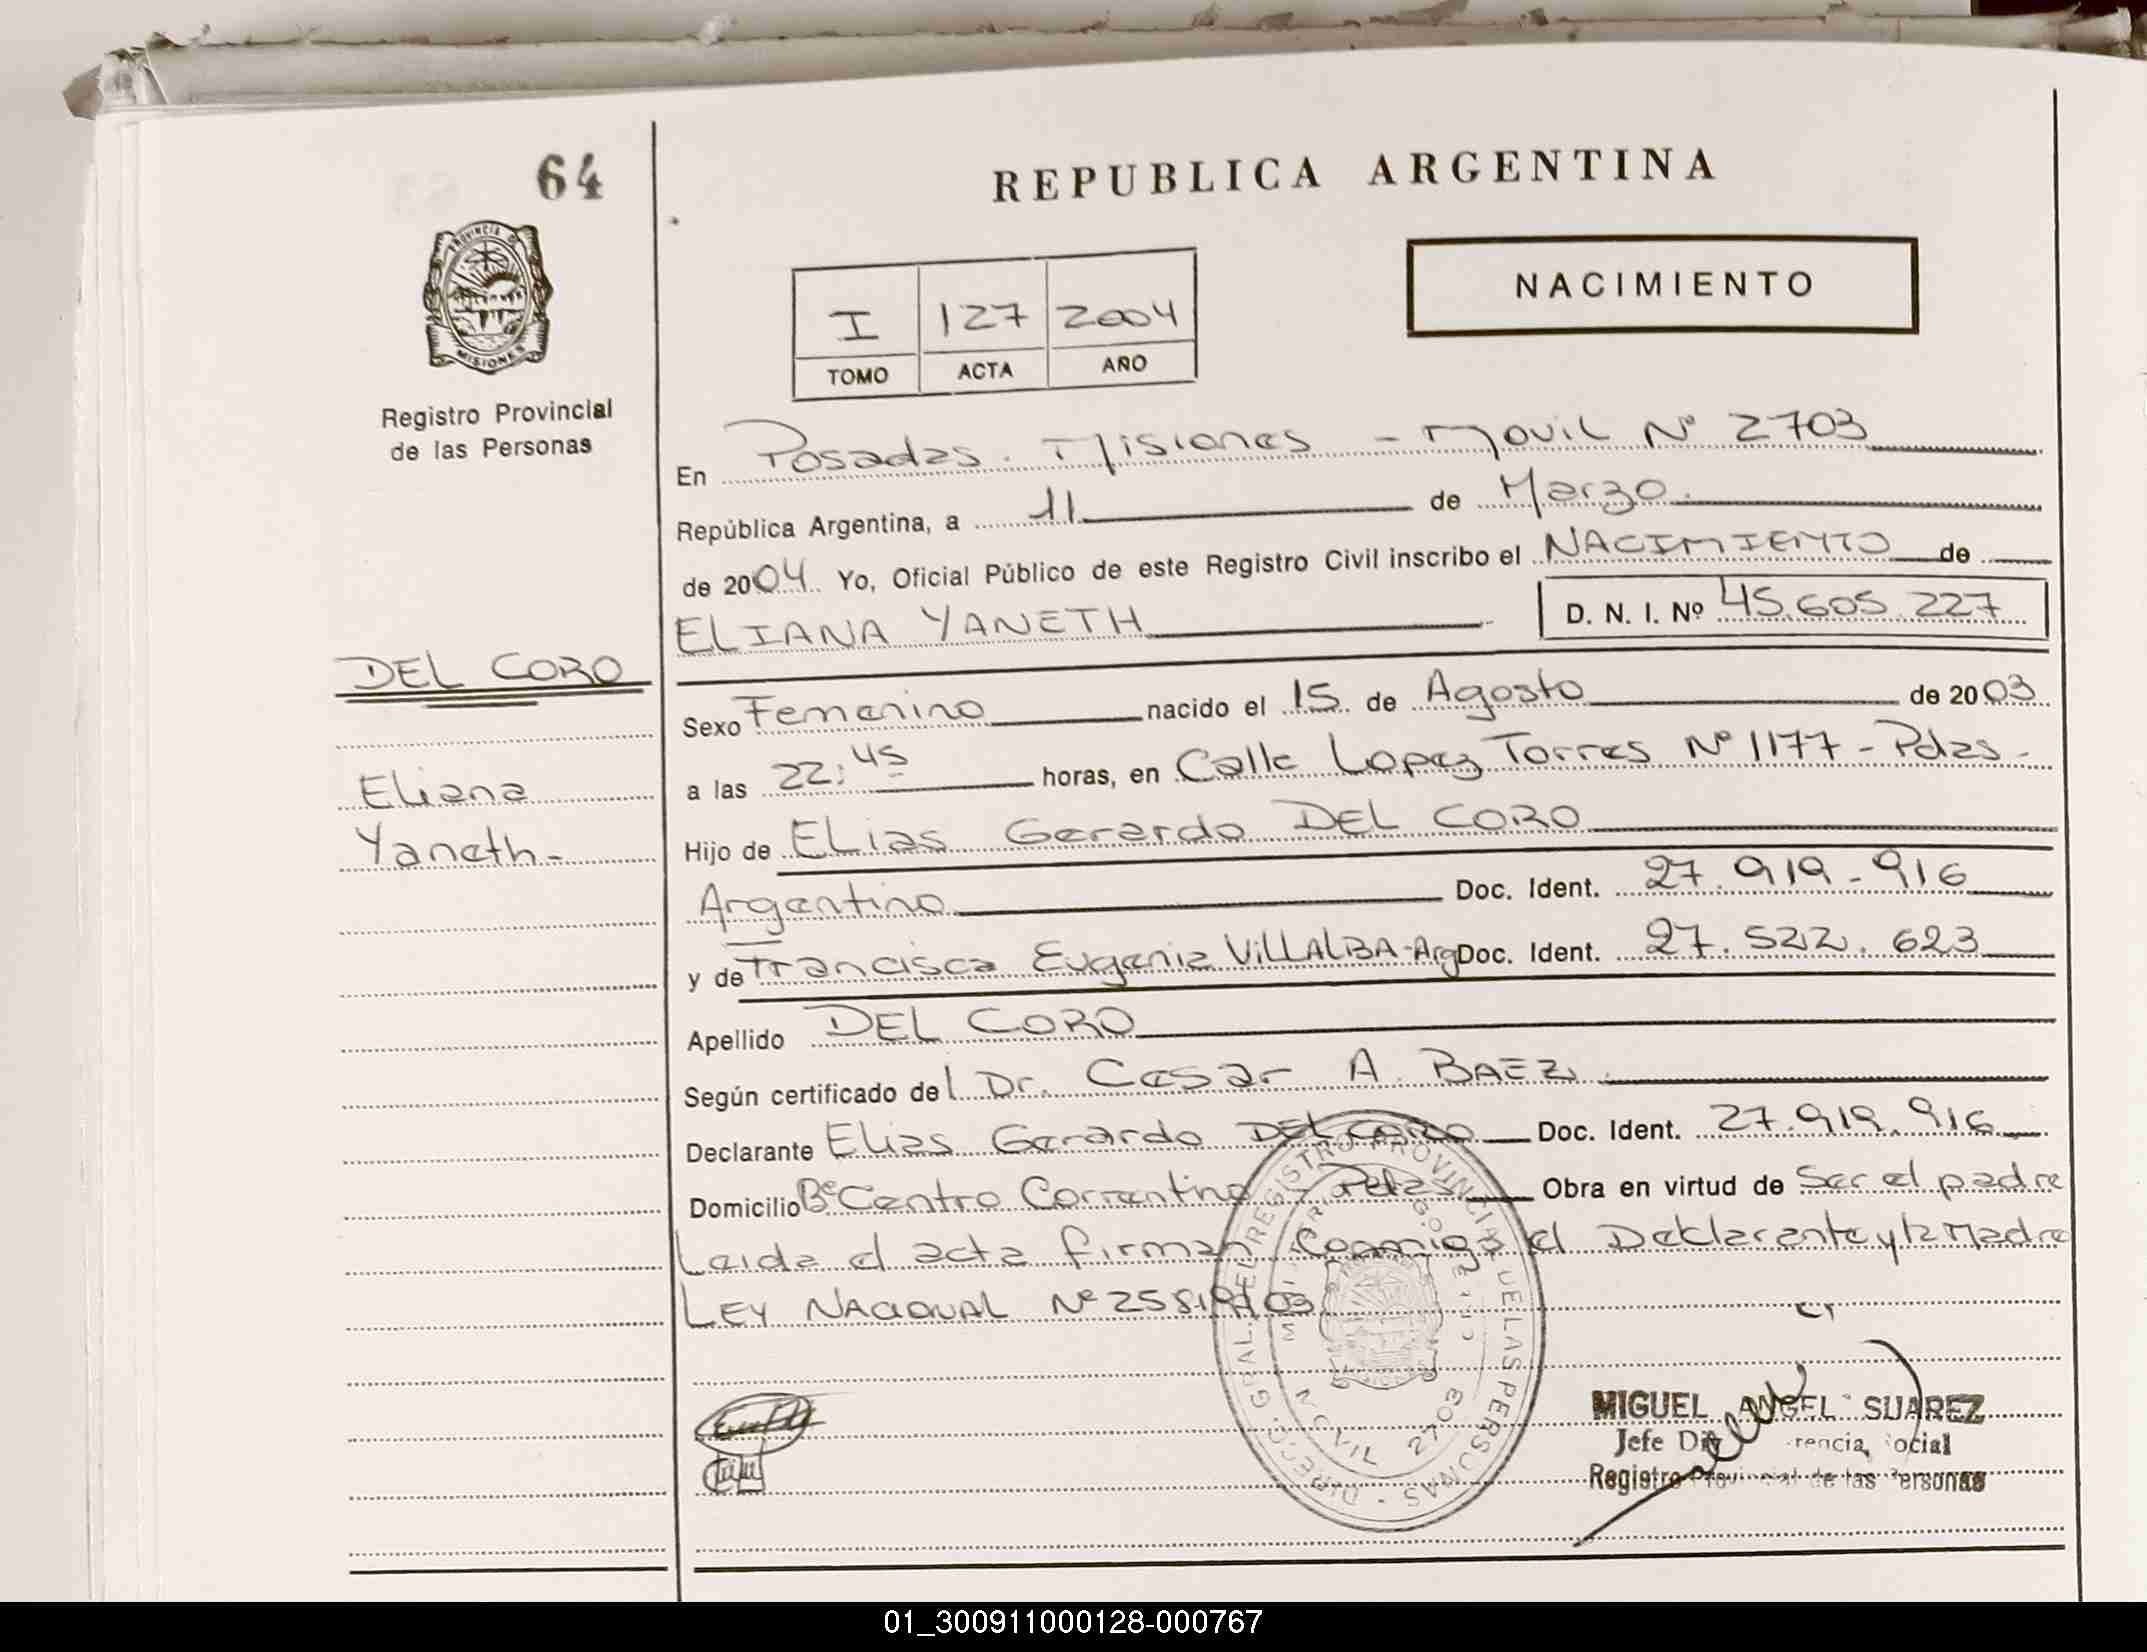 64
REPUBLICA ARGENTINA
PROVINCIA D
MISIONES
Registro Provincial
de las Personas
I 127 2004
TOMO ACTA AÑO
NACIMIENTO
En Posadas. Misiones - Movil Nº 2703
República Argentina, a 11 de Marzo.
de 2004. Yo, Oficial Público de este Registro Civil inscribo el NACIMIENTO de
ELIANA YANETH D. N. I. Nº 45.605.227
DEL CORO
Eliana
Yaneth-
Sexo Femenino nacido el 15 de Agosto de 2003
a las 22:45 horas, en Calle Lopez Torres Nº 1177 - Pdas -
Hijo de Elias Gerardo DEL CORO
Argentino Doc. Ident. 27.919.916
y de Francisca Eugenia VILLALBA-Arg Doc. Ident. 27.522.623
Apellido DEL CORO
Según certificado del Dr. Cesar A. BAEZ.
Declarante Elias Gerardo DEL CORO Doc. Ident. 27.919.916
Domicilio Bº Centro Correntino - Pdas Obra en virtud de Ser el padre
Leida el acta firman conmigo el Declarante y la Madre
LEY NACIONAL Nº 25819/03
DIRECC. GRAL. DEL REGISTRO PROVINCIAL DE LAS PERSONAS
MOVIL 2703
MIGUEL ANGEL SUAREZ
Jefe
Registro Provincial de las Personas
01_300911000128-000767